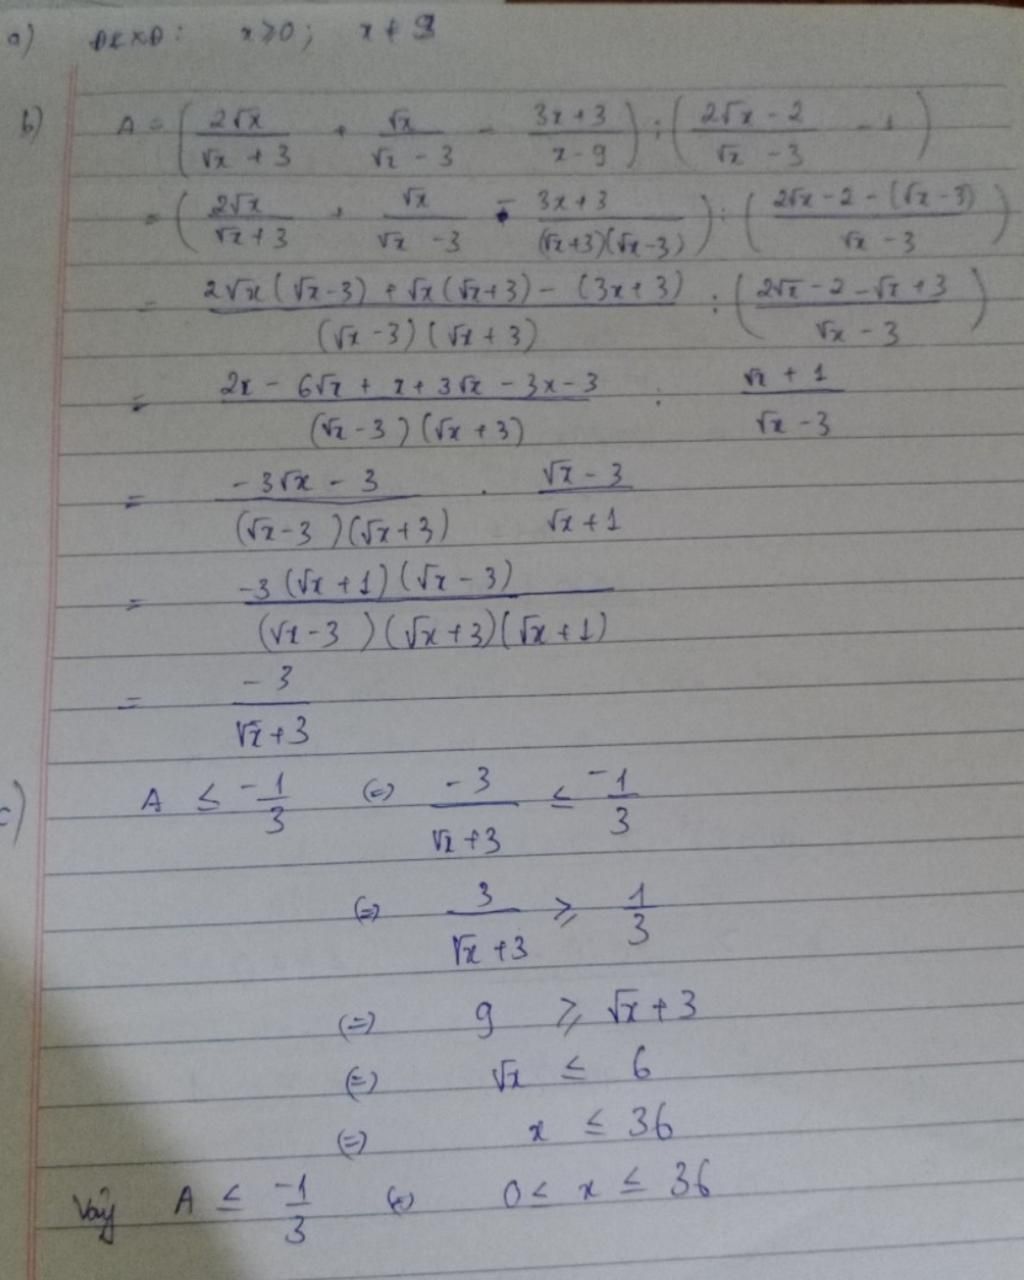 a) ĐKXĐ: x ≥ 0; x ≠ 9
b) A = (2√x / (√x + 3) + √x / (√x - 3) - (3x + 3) / (x - 9)) : ((2√x - 2) / (√x - 3) - 1)
= (2√x / (√x + 3) + √x / (√x - 3) - (3x + 3) / ((√x + 3)(√x - 3))) : ((2√x - 2 - (√x - 3)) / (√x - 3))
= (2√x(√x - 3) + √x(√x + 3) - (3x + 3)) / ((√x - 3)(√x + 3)) : ((2√x - 2 - √x + 3) / (√x - 3))
= (2x - 6√x + x + 3√x - 3x - 3) / ((√x - 3)(√x + 3)) : (√x + 1) / (√x - 3)
= (-3√x - 3) / ((√x - 3)(√x + 3)) . (√x - 3) / (√x + 1)
= -3(√x + 1)(√x - 3) / ((√x - 3)(√x + 3)(√x + 1))
= -3 / (√x + 3)
c) A ≤ -1/3 (=) -3 / (√x + 3) ≤ -1/3
(=) 3 / (√x + 3) ≥ 1/3
(=) 9 ≥ √x + 3
(=) √x ≤ 6
(=) x ≤ 36
Vậy A ≤ -1/3 (=) 0 ≤ x ≤ 36